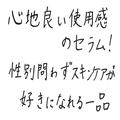 心地良い使用感
のセラム!
性別問わずスキンケアが
好きになれる一品